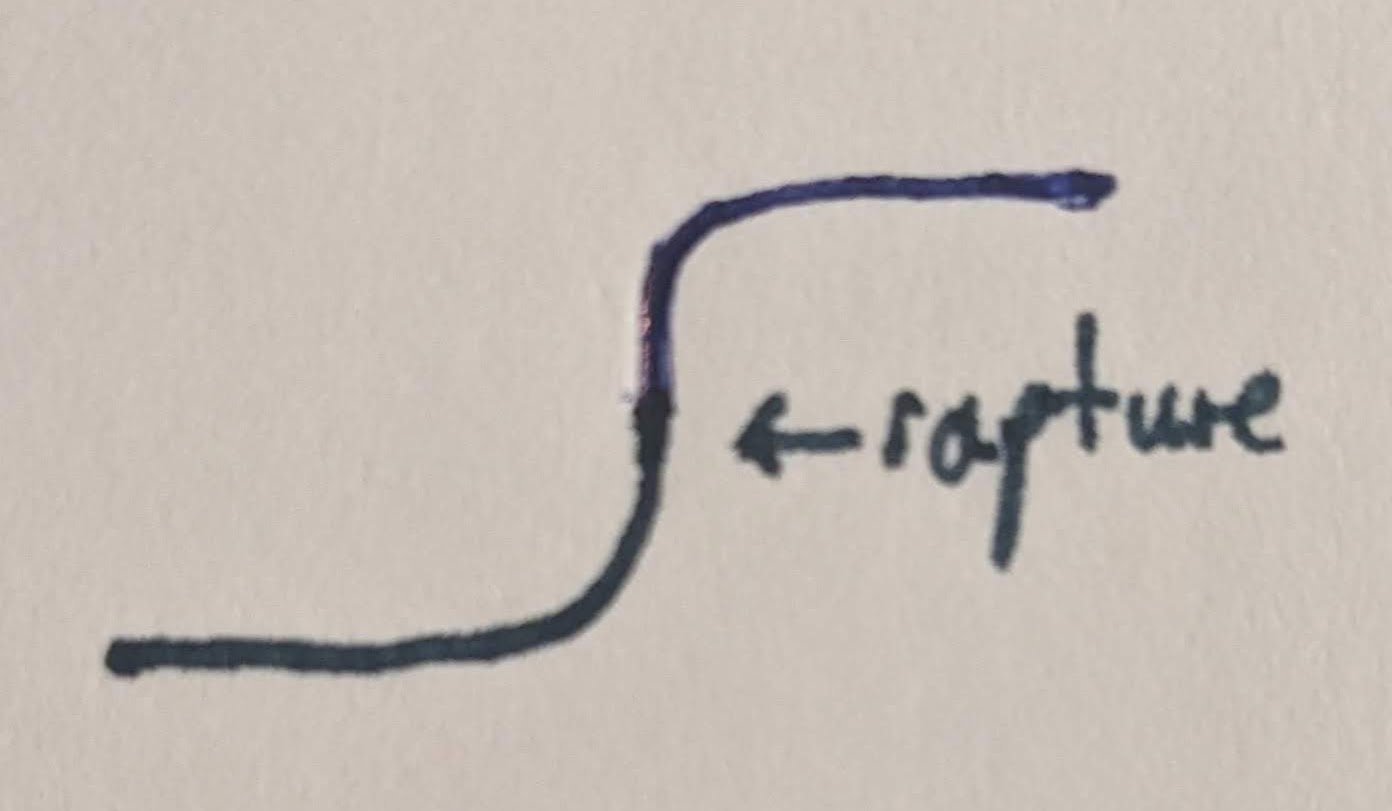 ←rapture